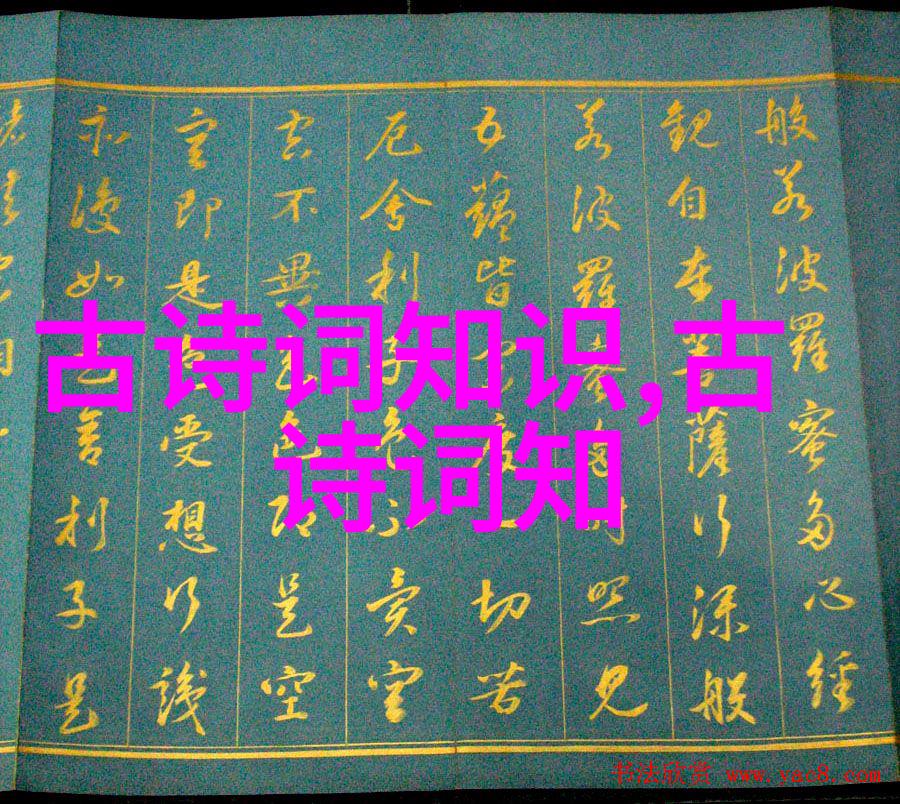 般若波羅蜜多心經
觀自在菩薩行深般
若波羅蜜多時照見
五蘊皆空度一切苦
厄舍利子色不異空
空不異色色即是空
空即是色受想行識
亦復如是舍利子是
古诗词知识,古
诗词知
书法欣赏 www.yac8.com